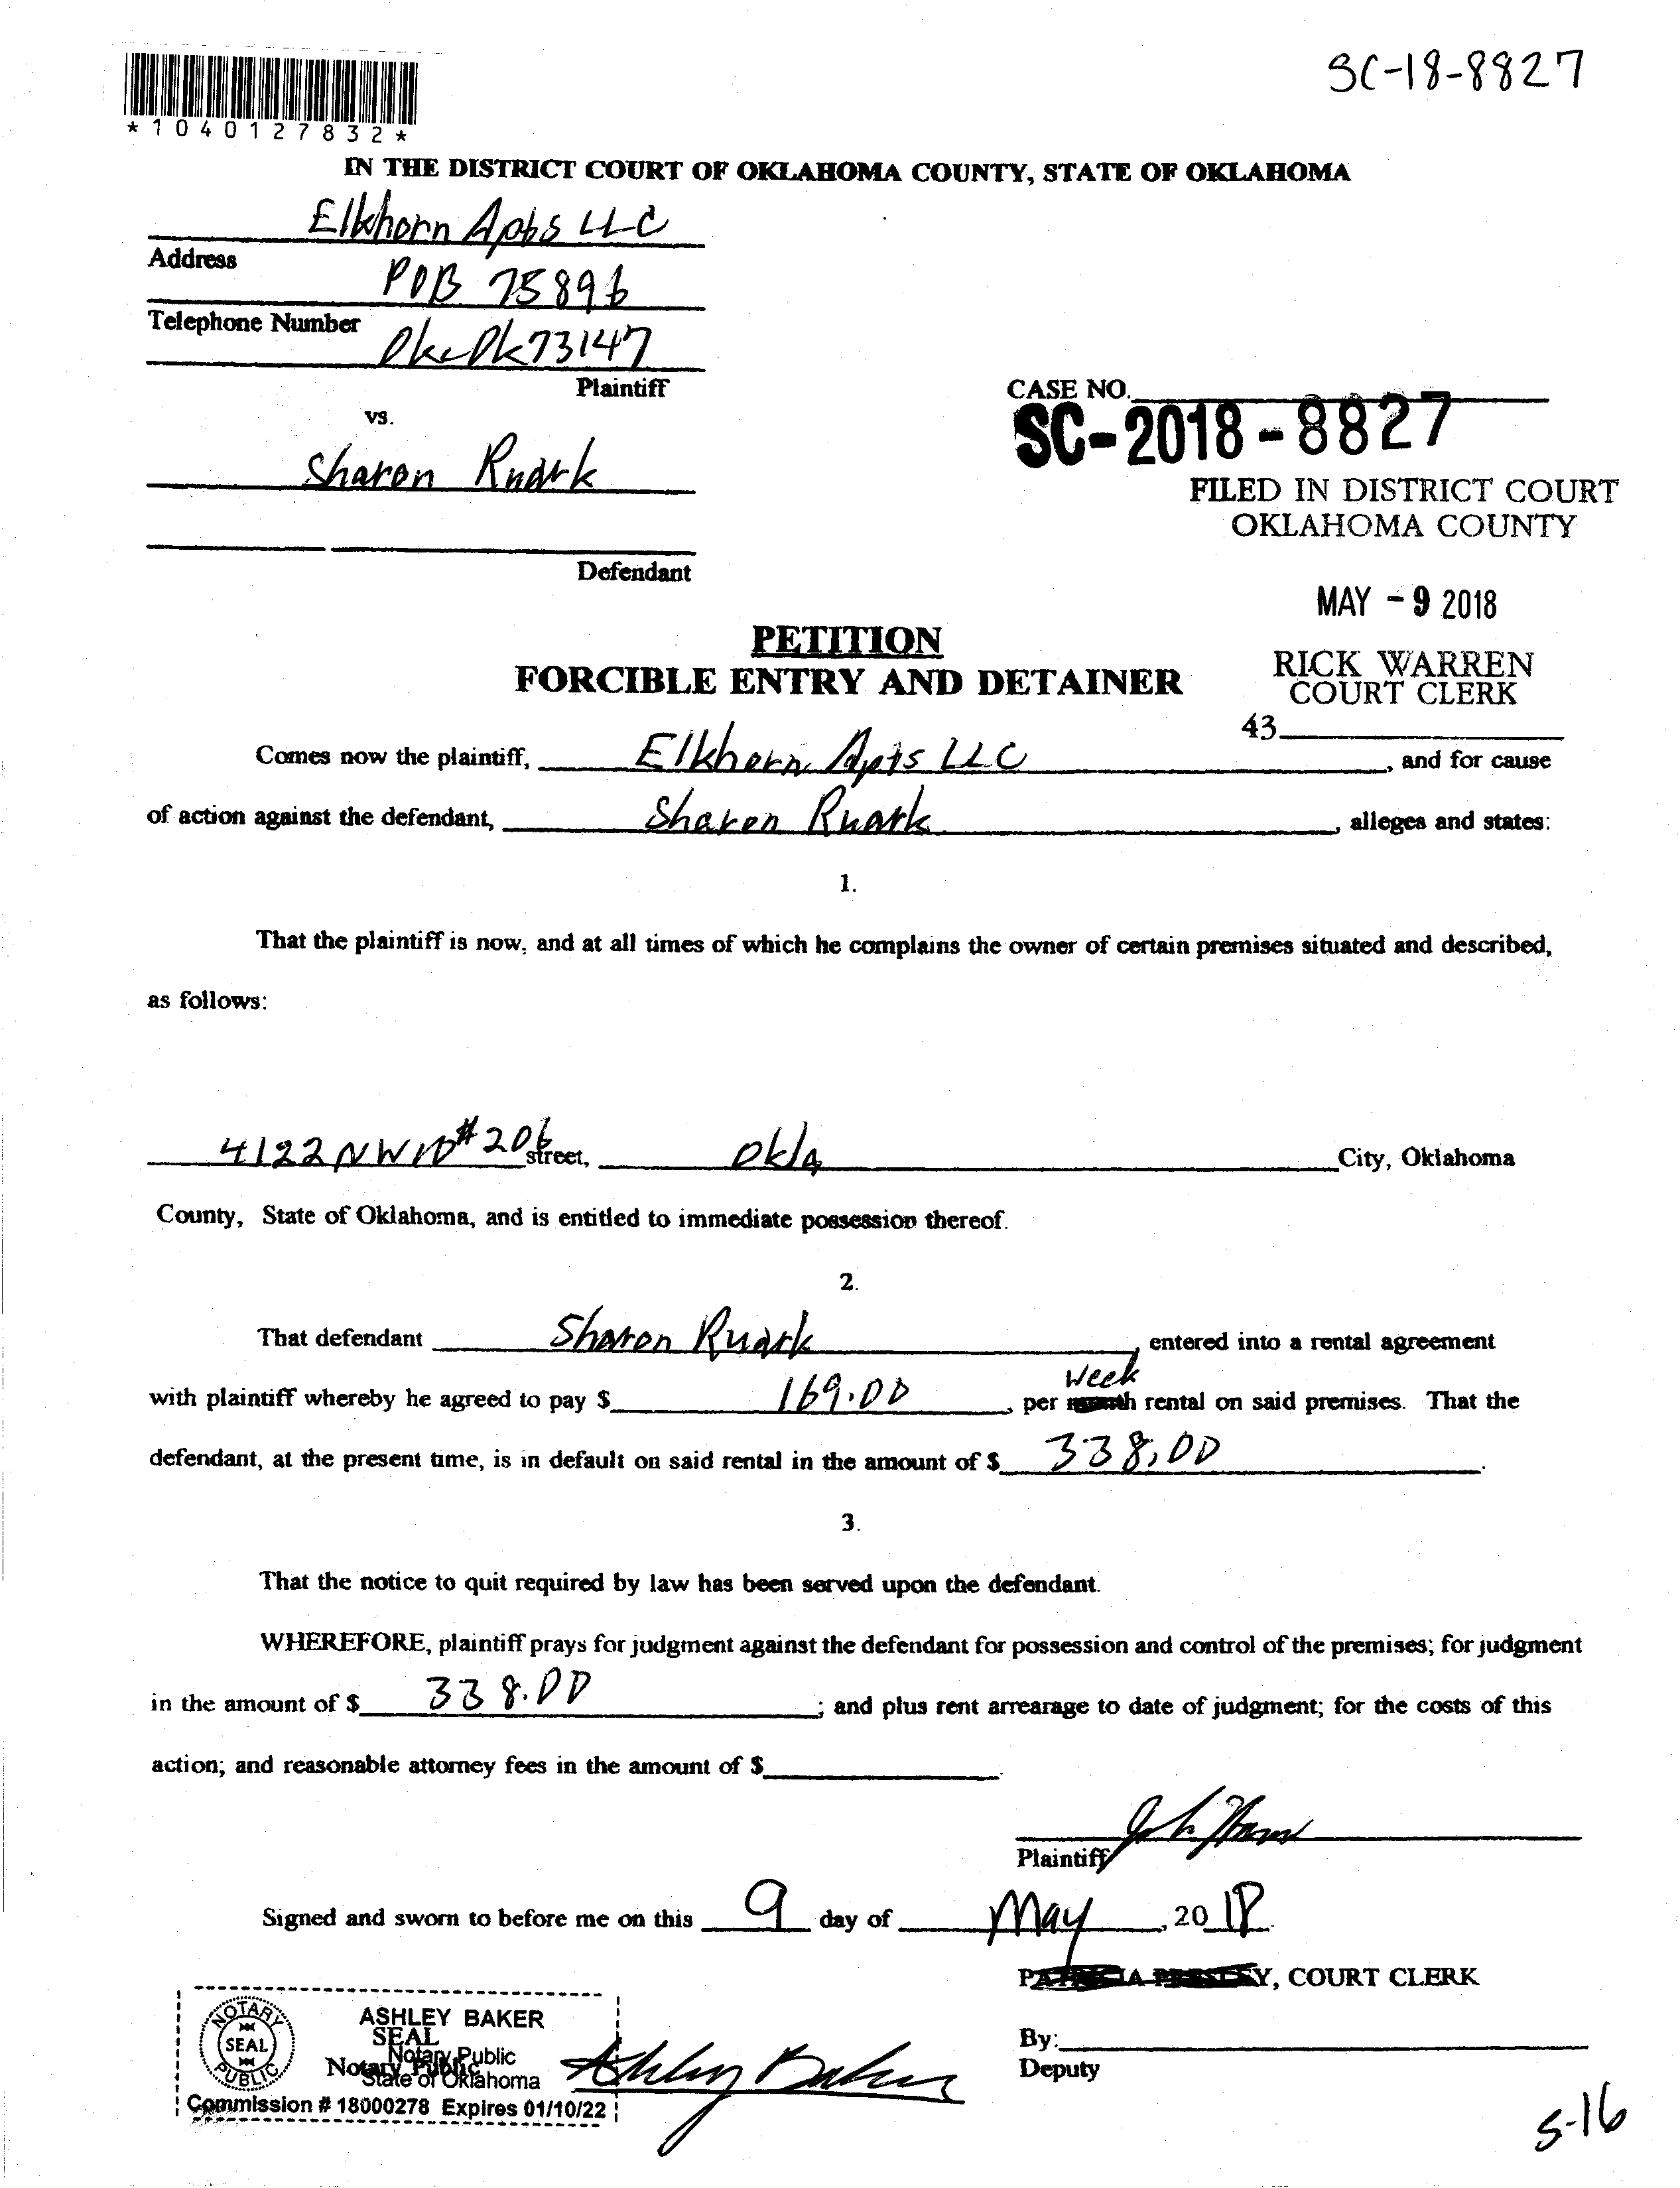 SC-18-8827
*1040127832*
IN THE DISTRICT COURT OF OKLAHOMA COUNTY, STATE OF OKLAHOMA
Elkhorn Apts LLC
Address
POB 75896
Telephone Number
Okc Ok 73147
Plaintiff
CASE NO.
vs.
SC-2018-8827
Sharon Ruark
FILED IN DISTRICT COURT
OKLAHOMA COUNTY
Defendant
MAY - 9 2018
PETITION
FORCIBLE ENTRY AND DETAINER
RICK WARREN
COURT CLERK
43
Comes now the plaintiff, Elkhorn Apts LLC, and for cause
of action against the defendant, Sharon Ruark, alleges and states:
1.
That the plaintiff is now, and at all times of which he complains the owner of certain premises situated and described,
as follows:
4122 NW 10 #206 street, Okla City, Oklahoma
County, State of Oklahoma, and is entitled to immediate possession thereof.
2.
That defendant Sharon Ruark, entered into a rental agreement
week
with plaintiff whereby he agreed to pay $ 169.00, per month rental on said premises. That the
defendant, at the present time, is in default on said rental in the amount of $ 338.00.
3.
That the notice to quit required by law has been served upon the defendant.
WHEREFORE, plaintiff prays for judgment against the defendant for possession and control of the premises; for judgment
in the amount of $ 338.00; and plus rent arrearage to date of judgment; for the costs of this
action; and reasonable attorney fees in the amount of $
Plaintiff
Signed and sworn to before me on this 9 day of May, 20 18.
PATRICIA PRESLEY, COURT CLERK
NOTARY PUBLIC
SEAL
ASHLEY BAKER
SEAL
Notary Public
Notary Public
State of Oklahoma
Commission # 18000278 Expires 01/10/22
Ashley Baker
By:
Deputy
5-16